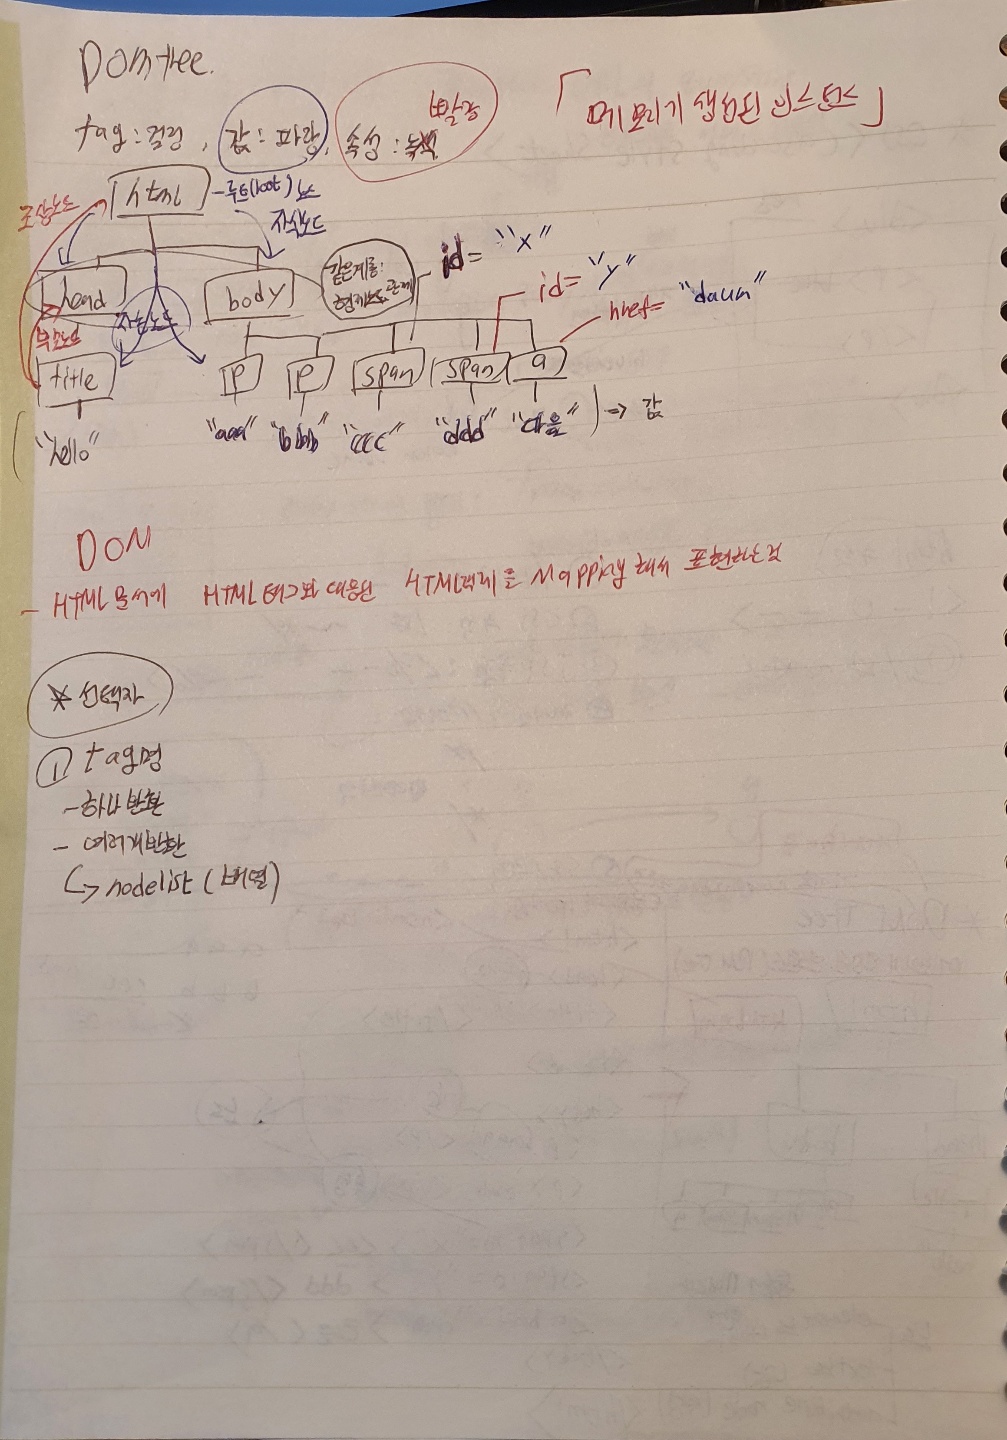 DOMtree.
tag : 검정, 값 : 파랑, 속성 : 녹색 빨강
「메모리가 생성된 인스턴스」
조상노드 html -루트(root) 노드
자식노드
head body 같은계층: 형제노드 관계 id= "x" id= "y" href= "daum"
부모노드 자손노드
title p p span span a
"hello" "aaa" "bbb" "ccc" "ddd" "다음" ) → 값
DOM
- HTML 문서에 HTML 태그와 대응된 HTML객체를 Mapping 해서 표현하는것
* 선택자
① tag명
- 하나 반환
- 여러개반환
↳ nodelist (배열)